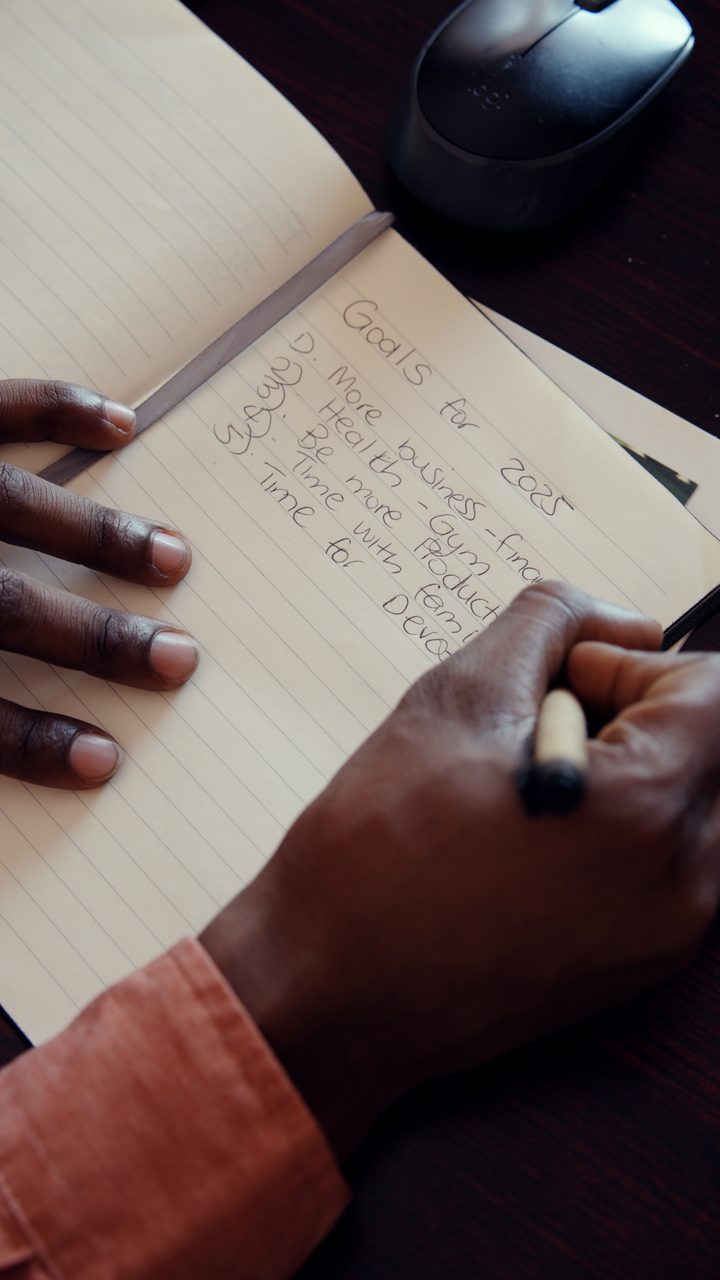 Goals for 2025
1). More business - fina
2). Health - Gym
3). Be more Product
4). Time with fami
5). Time for Devo